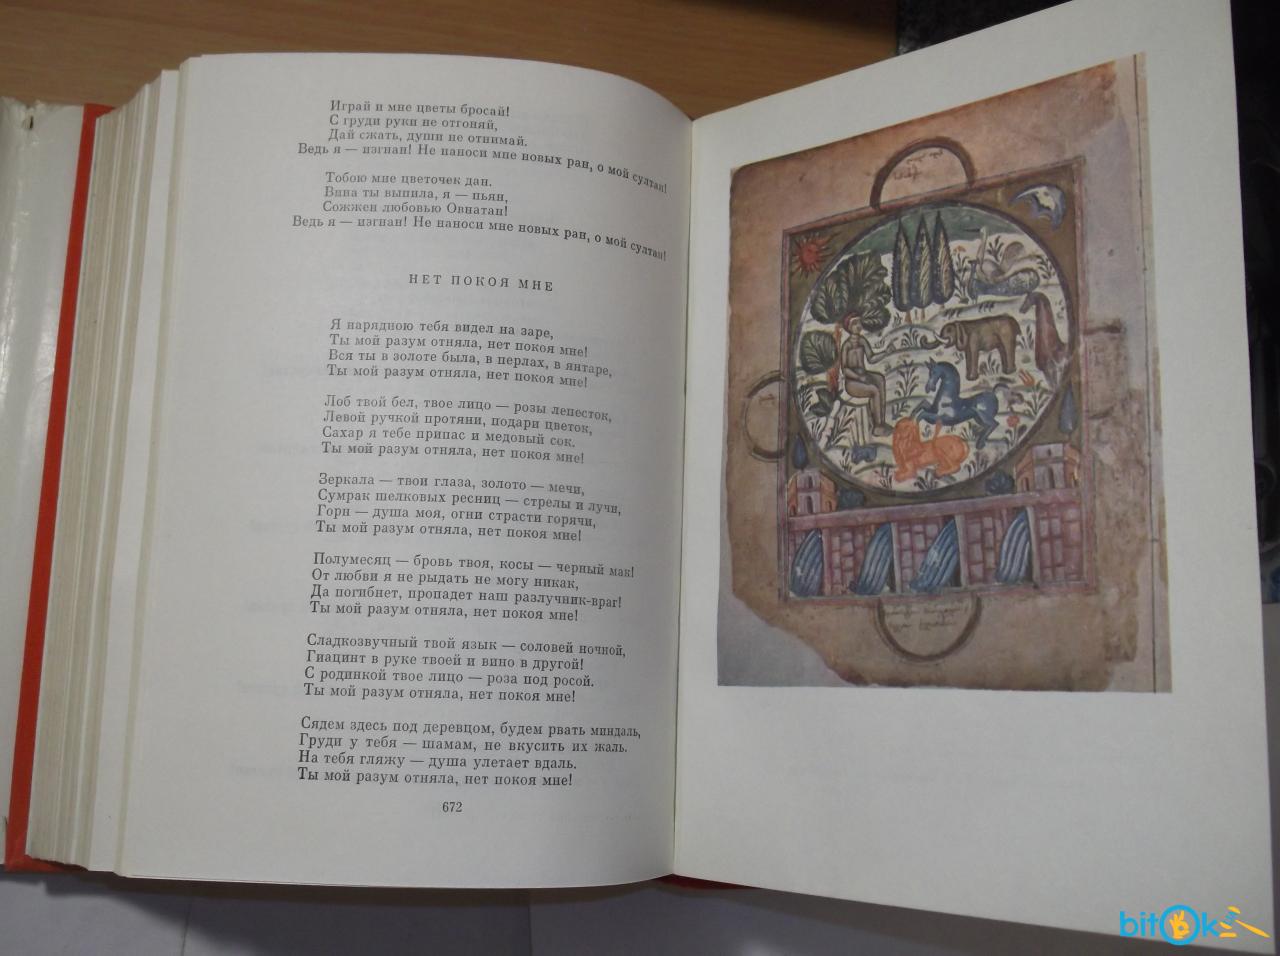 Играй и мне цветы бросай!
С груди руки не отгоняй,
Дай сжать, души не отнимай.
Ведь я — изгнан! Не наноси мне новых ран, о мой султан!
Тобою мне цветочек дан.
Вина ты выпила, я — пьян,
Сожжен любовью Овнатан!
Ведь я — изгнан! Не наноси мне новых ран, о мой султан!
НЕТ ПОКОЯ МНЕ
Я нарядною тебя видел на заре,
Ты мой разум отняла, нет покоя мне!
Вся ты в золоте была, в перлах, в янтаре,
Ты мой разум отняла, нет покоя мне!
Лоб твой бел, твое лицо — розы лепесток,
Левой ручкой протяни, подари цветок,
Сахар я тебе припас и медовый сок.
Ты мой разум отняла, нет покоя мне!
Зеркала — твои глаза, золото — мечи,
Сумрак шелковых ресниц — стрелы и лучи,
Горн — душа моя, огни страсти горячи,
Ты мой разум отняла, нет покоя мне!
Полумесяц — бровь твоя, косы — черный мак!
От любви я не рыдать не могу никак,
Да погибнет, пропадет наш разлучник-враг!
Ты мой разум отняла, нет покоя мне!
Сладкозвучный твой язык — соловей ночной,
Гиацинт в руке твоей и вино в другой!
С родинкой твое лицо — роза под росой.
Ты мой разум отняла, нет покоя мне!
Сядем здесь под деревцом, будем рвать миндаль,
Груди у тебя — шамам, не вкусить их жаль.
На тебя гляжу — душа улетает вдаль.
Ты мой разум отняла, нет покоя мне!
672
bitOk